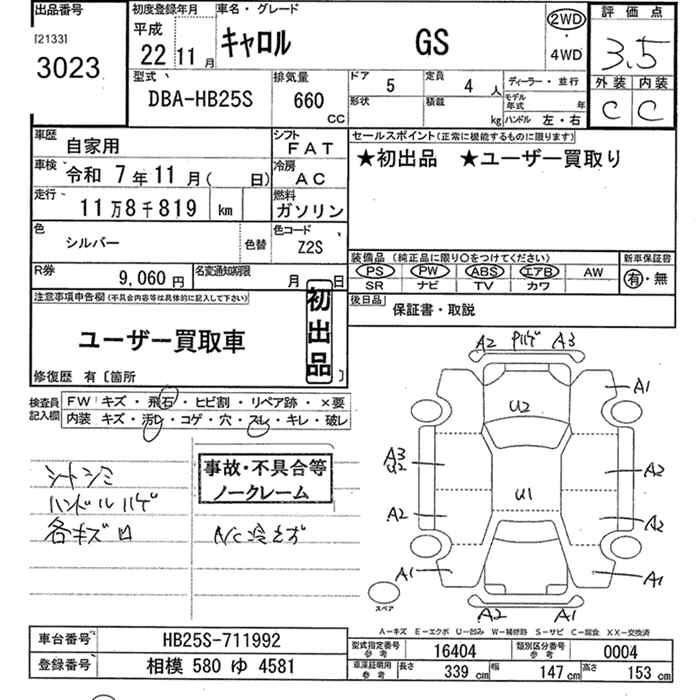 出品番号 初度登録年月 車名・グレード 2WD 評価点
[2133] 平成
3023 22年 11月 キャロル GS ・ 3.5
4WD
型式 排気量 ドア 5 定員 4人 ディーラー・並行 外装 内装
DBA-HB25S 660 CC 形状 積載 kg モデル年式 年 C C
ハンドル 左・右
車歴 自家用 シフト FAT セールスポイント(正常に機能するものに限ります)
車検 令和 7年 11月( 日) 冷房 AC ★初出品 ★ユーザー買取り
走行 11万8千819 km 燃料 ガソリン
色 シルバー 色替 色コード Z2S
装備品 (純正品に限り○をつけてください) 新車保証書
R券 9,060円 名変通知期限 月 日 PS PW ABS エアB AW 有・無
SR ナビ TV カワ
注意事項申告欄(不具合内容等は具体的に記入して下さい) 初出品 後日品 保証書・取説
ユーザー買取車
修復歴 有〔箇所 〕
検査員記入欄 FW キズ・飛石・ヒビ割・リペア跡・×要
内装 キズ・汚れ・コゲ・穴・スレ・キレ・破レ
シートシミ 事故・不具合等
ハンドルハゲ ノークレーム
各キズ凹 A/C冷えず
A2 ハゲ A3
A1
U2
A3
U2
A2
U1
A2 A2
A1 A1
スペア
A2 A1
A-キズ E-エクボ U-凹み W-補修跡 S-サビ C-腐食 XX-交換済
車台番号 HB25S-711992 型式指定番号 参考 16404 類別区分番号 参考 0004
登録番号 相模 580 ゆ 4581 車庫証明用 参考 長さ 339cm 幅 147cm 高さ 153cm